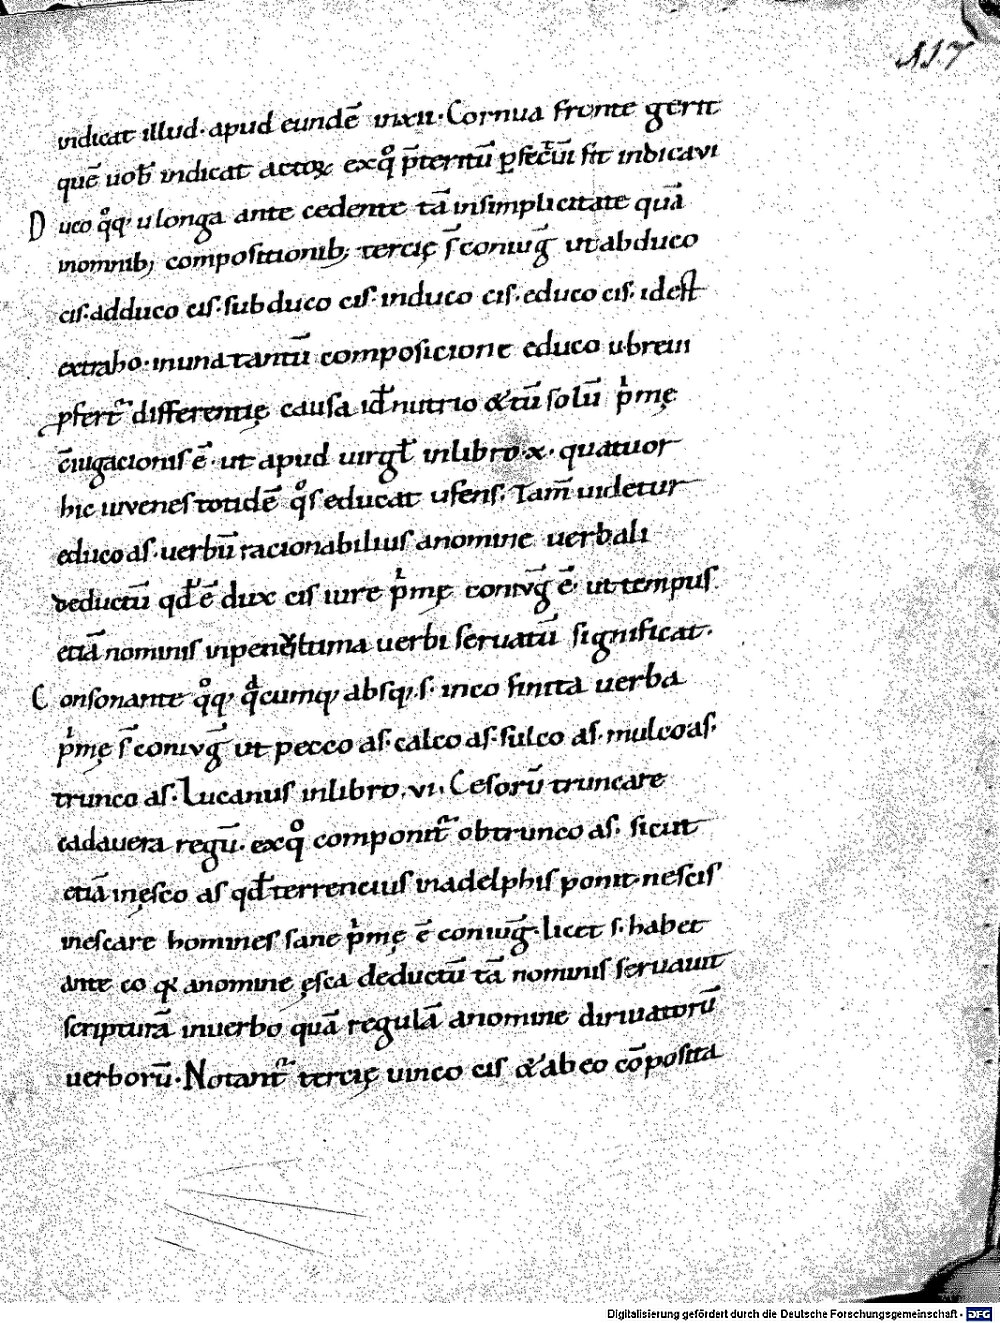 117
indicat illud· apud eundē inxii· Cornua fronte gerit
quē uob̄ indicat actoꝝ exqͦ p̄teritū ꝑfec̄tū fit indicavi
Duco qͦqꝫ u longa ante cedente tā insimplicitate quā
inomnibꝫ compositionibꝫ tercię s̄ coniuḡ ut abduco
cis· adduco cis· subduco cis· induco cis· educo cis· idest
extraho· inuna tantū composicione educo u brevi
ꝓfert᷑ differentię causa id̄ nutrio &tū solū pⁱmę
c̄iugacionis ē· ut apud uirgł inlibro·x· quatuor
hic iuvenes totidē qͦs educat ufens· Tam̄ uidetur
educo as· uerbū racionabilius anomine uerbali
deductū qd̄ ē dux cis iure pⁱmę coniuḡ ē· ut tempus
etiā nominis inpenultima uerbi seruatū significat·
Consonante qͦqꝫ qͣcumqꝫ absqꝫ·s· inco finita uerba
pⁱmę s̄ coniuḡ ut pecco as· calco as· sulco as· mulco as·
trunco as· Lucanus inlibro·vi· Cesorū truncare
cadauera regū· exqͦ componit᷑ obtrunco as· sicut
etiā inęsco as qd̄ terrencius inadelphis ponit· nescis
inescare homines sane pⁱmę ē coniuḡ· licet s· habet
ante co qꝛ anomine ęsca deductū tā nominis seruauit
scripturā inuerbo quā regulā anomine diriuatorū
uerborū· Notant᷑ tercię uinco cis &ab eo cōposita
Digitalisierung gefördert durch die Deutsche Forschungsgemeinschaft - DFG